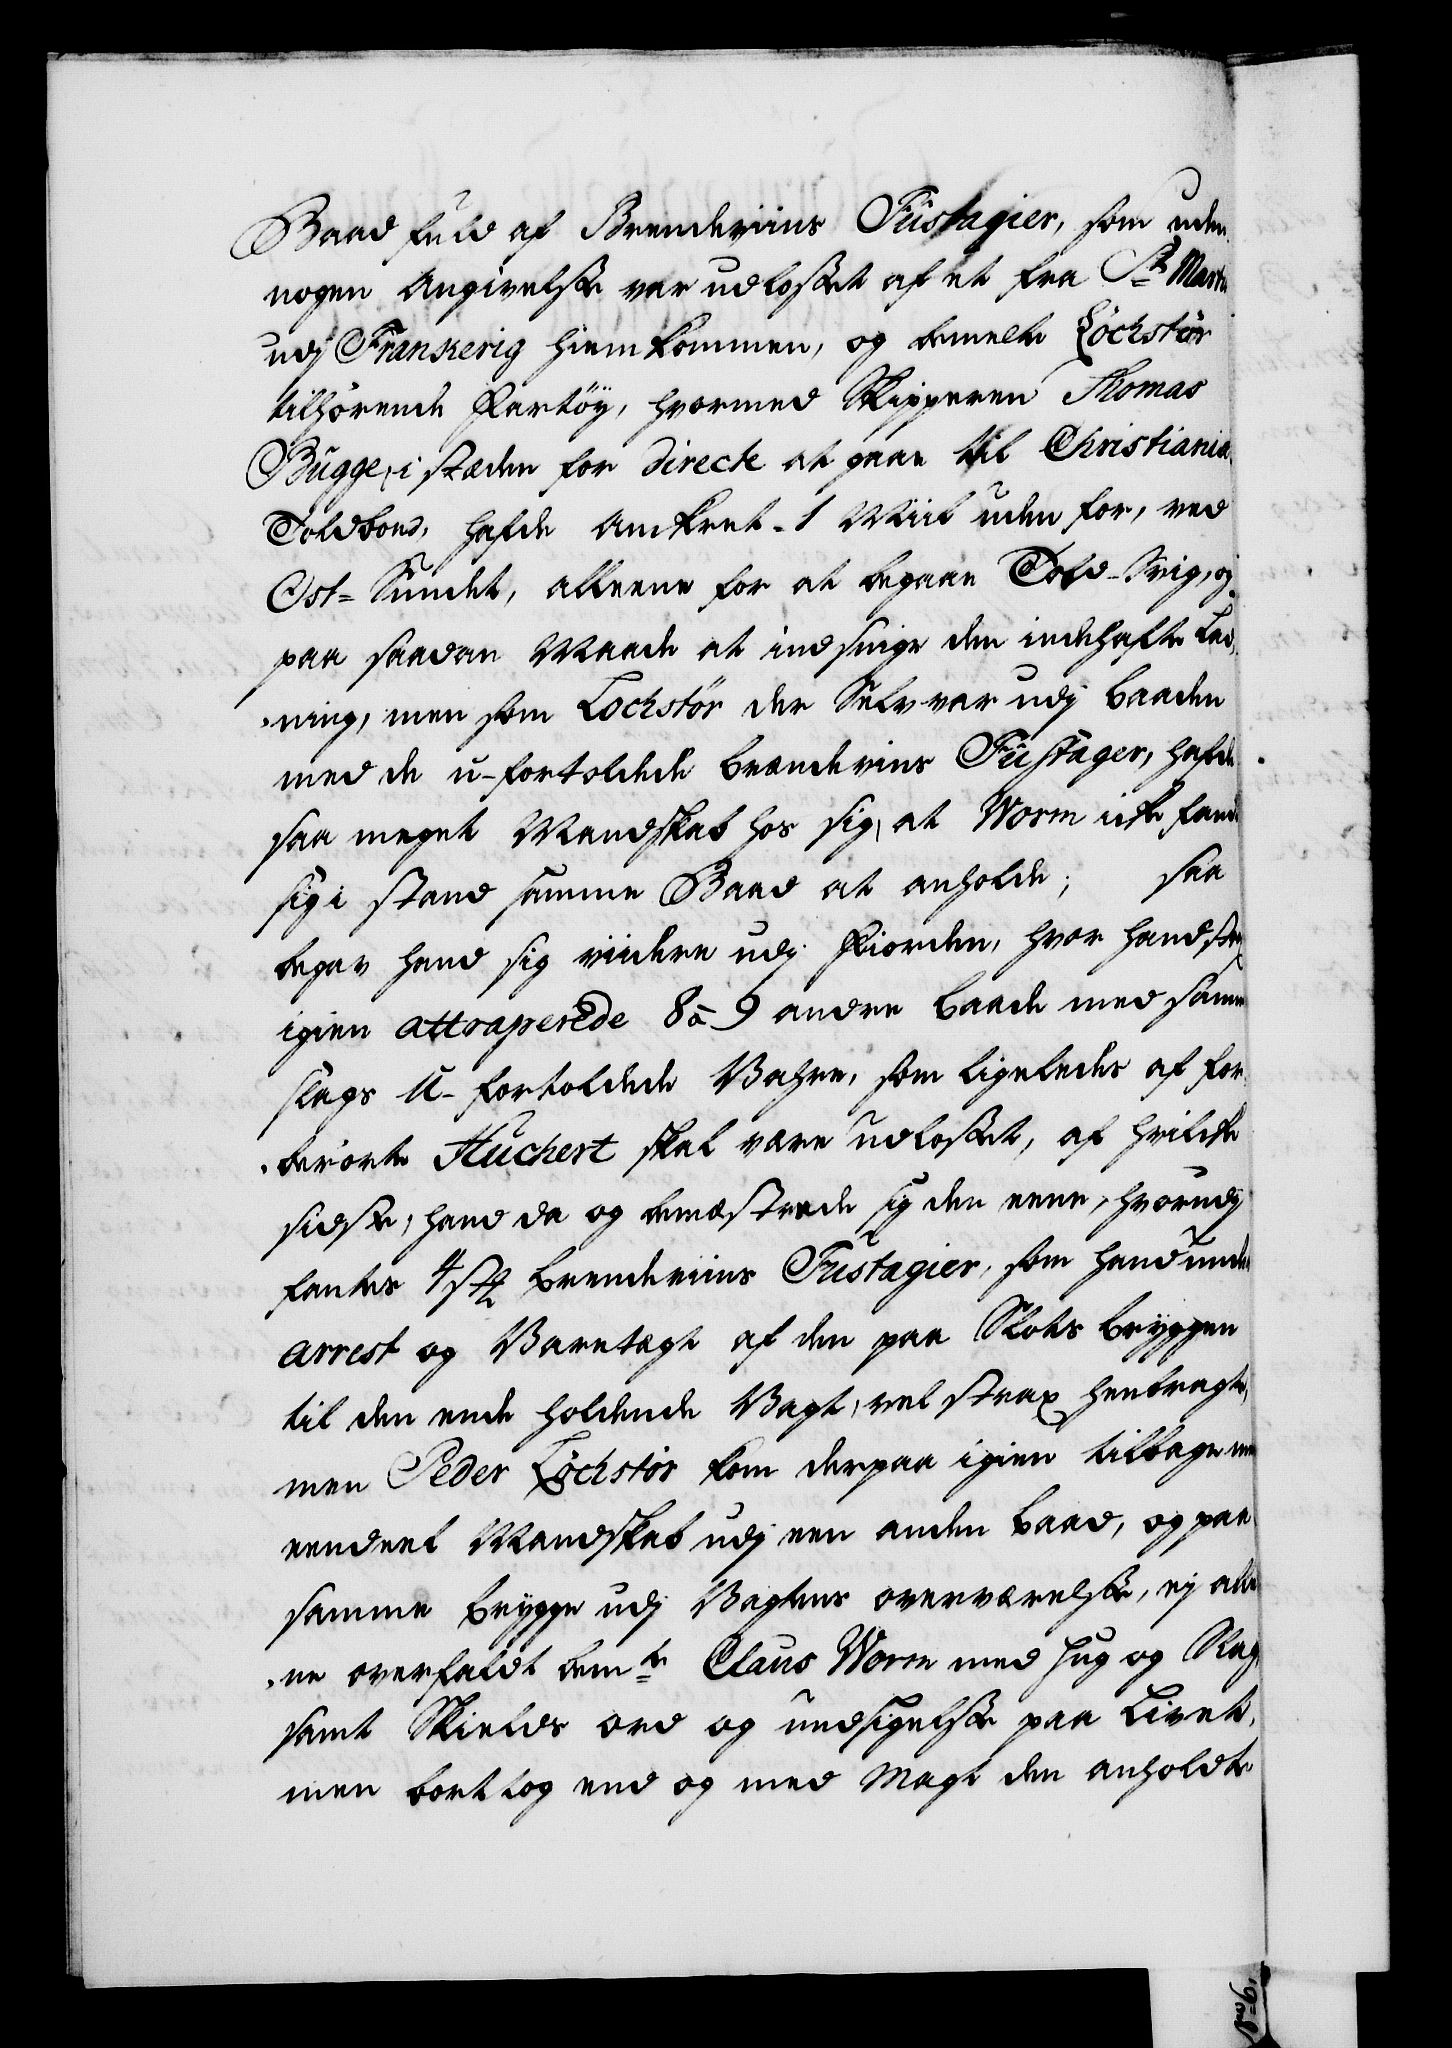 Baad fuld af Brendeviins Fustagier, som uden
nogen Angivelse var udlosset af et fra St Martin
udj Frankerig hiemkommen, og bemelte Löchstör
tilhörende Fartöy, hvormed Skipperen Thomas
Bugge, i stæden for directe at gaae til Christiania
Toldboed, hafde Ankret 1 Miil uden for, ved
Ost-Sundet, alleene for at begaae Told-Svig, og
paa saadan Maade at indsnige den indehafte Lad-
ning, men som Lochstör der Selv var udj Baaden
med de u-fortoldede brændeviins Fustager, hafde
saa meget Mandskab hos sig, at Worm icke fandt
sig i stand samme Baad at anholde; saa
begav hand sig viidere udj Fiorden, hvor hand strax
igien attraperede 8 à 9 andre Baade med samme
slags U-fortoldede Vahre, som ligeledes af for-
berörte Huckert skal være udlosset, af hvilcke
sidste, hand da og bemæstrede sig den eene, hvorudj
fantes 4 st Brendeviins Fustagier, som hand under
arrest og Varetægt af den paa Slots bryggen
til den ende holdende Vagt, vel strax henbragte,
men Peder Löchstör kom derpaa igien tilbage med
eendeel Mandskab udj een anden Baad, og paa
samme brygge udj Vagtens overværelse, ej alle-
ne overfaldt bemte Claus Worm med Hug og Slag,
samt Skields ord og undsigelse paa Livet,
men borttog end og med Magt den anholdte